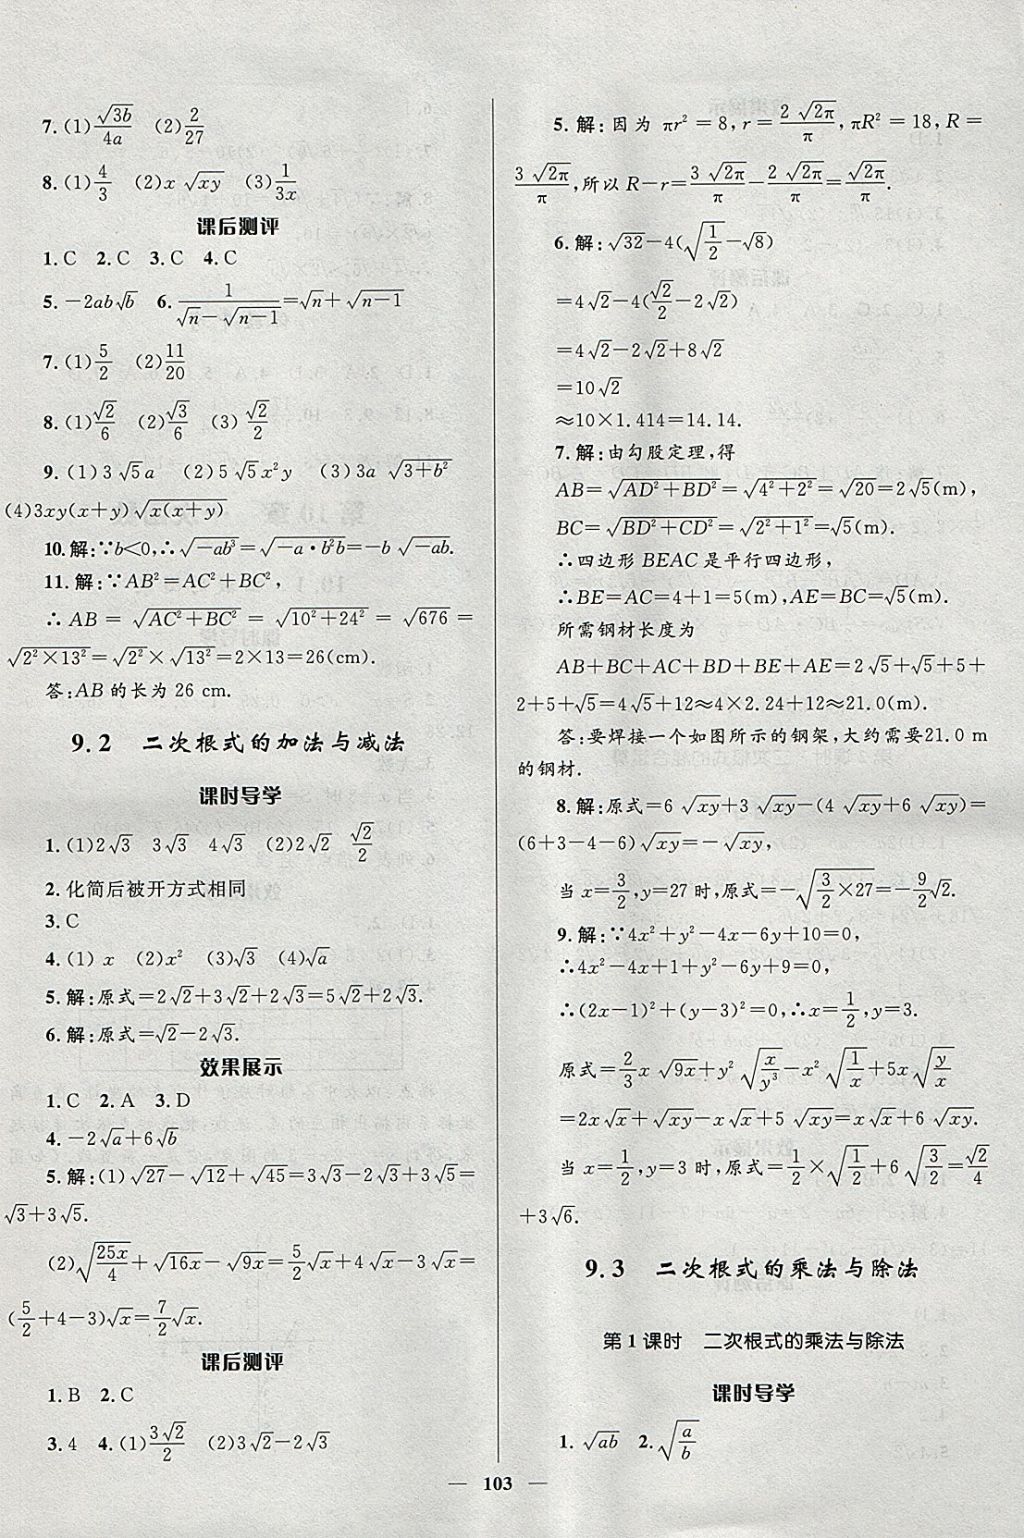 7.(1)√(3b)/4a  (2)2/27
8.(1)4/3  (2)x√(xy)  (3)1/(3x)
课后测评
1.C  2.C  3.C  4.C
5.-2ab√b  6.1/(√n-√(n-1))=√n+√(n-1)
7.(1)5/2  (2)11/20
8.(1)√2/6  (2)√3/6  (3)√2/2
9.(1)3√5a  (2)5√5x²y  (3)3a√(3+b²)
(4)3xy(x+y)√(x(x+y))
10.解:∵b<0,∴√(-ab³)=√(-a·b²b)=-b√(-ab).
11.解:∵AB²=AC²+BC²,
∴AB=√(AC²+BC²)=√(10²+24²)=√676=
√(2²×13²)=√2²×√13²=2×13=26(cm).
答:AB的长为26 cm.
9.2  二次根式的加法与减法
课时导学
1.(1)2√3  3√3  4√3  (2)2√2  √2/2
2.化简后被开方式相同
3.C
4.(1)x  (2)x²  (3)√3  (4)√a
5.解:原式=2√2+3√2+2√3=5√2+2√3.
6.解:原式=√2-2√3.
效果展示
1.C  2.A  3.D
4.-2√a+6√b
5.解:(1)√27-√12+√45=3√3-2√3+3√5=
√3+3√5.
(2)√(25x/4)+√(16x)-√(9x)=5/2√x+4√x-3√x=
(5/2+4-3)√x=7/2√x.
课后测评
1.B  2.C
3.4  4.(1)3√2/2  (2)3√2-2√3
5.解:因为πr²=8,r=2√(2π)/π,πR²=18,R=
3√(2π)/π,所以R-r=3√(2π)/π-2√(2π)/π=√(2π)/π.
6.解:√32-4(√(1/2)-√8)
=4√2-4(√2/2-2√2)
=4√2-2√2+8√2
=10√2
≈10×1.414=14.14.
7.解:由勾股定理,得
AB=√(AD²+BD²)=√(4²+2²)=√20=2√5(m),
BC=√(BD²+CD²)=√(2²+1²)=√5(m).
∴四边形BEAC是平行四边形,
∴BE=AC=4+1=5(m),AE=BC=√5(m).
所需钢材长度为
AB+BC+AC+BD+BE+AE=2√5+√5+5+
2+5+√5=4√5+12≈4×2.24+12≈21.0(m).
答:要焊接一个如图所示的钢架,大约需要21.0 m
的钢材.
8.解:原式=6√(xy)+3√(xy)-(4√(xy)+6√(xy))=
(6+3-4-6)√(xy)=-√(xy),
当x=3/2,y=27时,原式=-√(3/2×27)=-9/2√2.
9.解:∵4x²+y²-4x-6y+10=0,
∴4x²-4x+1+y²-6y+9=0,
∴(2x-1)²+(y-3)²=0,∴x=1/2,y=3.
原式=2/3x√(9x)+y²√(x/y³)-x²√(1/x)+5x√(y/x)
=2x√x+√(xy)-x√x+5√(xy)=x√x+6√(xy).
当x=1/2,y=3时,原式=1/2×√(1/2)+6√(3/2)=√2/4
+3√6.
9.3  二次根式的乘法与除法
第1课时  二次根式的乘法与除法
课时导学
1.√(ab)  2.√(a/b)
— 103 —